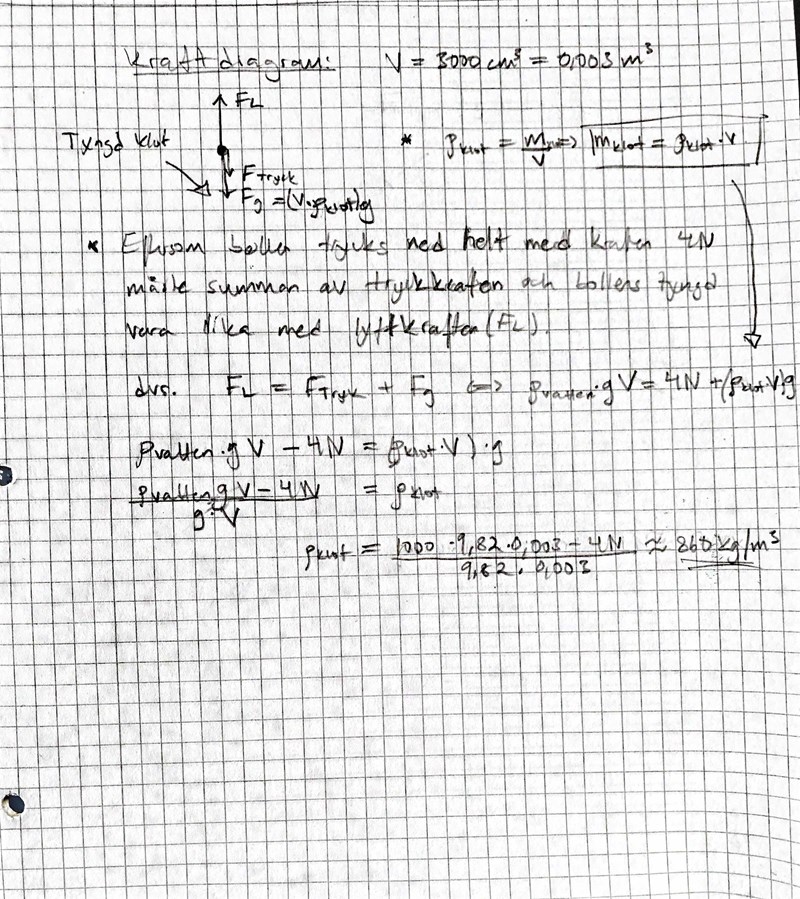 Kraftdiagram: V = 3000 cm³ = 0,003 m³
F_L
Tyngd klot
* ρ_klot = m/V => m_klot = ρ_klot · V
F_Tryck
F_g = (V·ρ_klot)g
* Eftersom bollen trycks ned helt med kraften 4N
måste summan av tryckkraften och bollens tyngd
vara lika med lyftkraften (F_L).
dvs. F_L = F_Tryck + F_g <=> ρ_vatten·g V = 4N + (ρ_klot·V)g
ρ_vatten·g V − 4N = (ρ_klot·V)·g
(ρ_vatten g V − 4N)/(g·V) = ρ_klot
ρ_klot = (1000 · 9,82 · 0,003 − 4N)/(9,82 · 0,003) ≈ 860 kg/m³